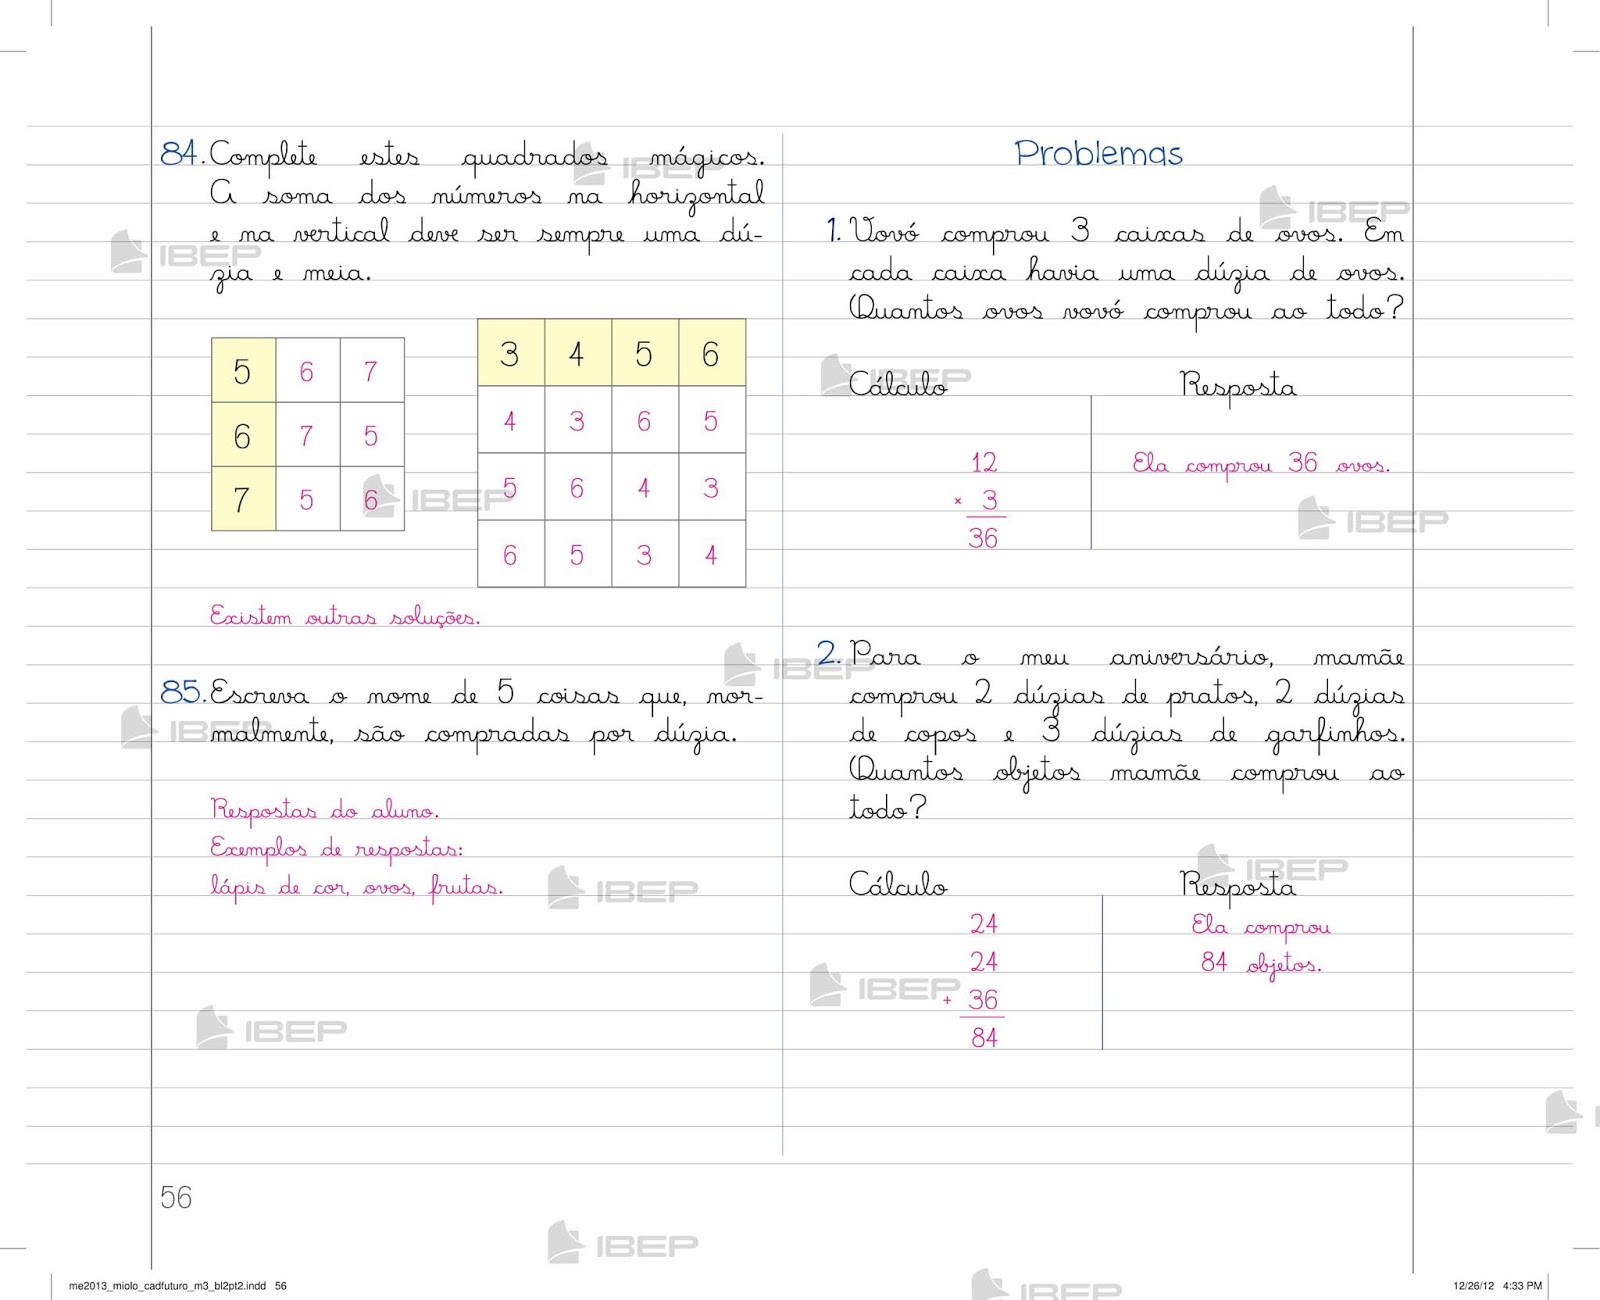 84. Complete estes quadrados mágicos.
A soma dos números na horizontal
e na vertical deve ser sempre uma dú-
zia e meia.
5 6 7
6 7 5
7 5 6
3 4 5 6
4 3 6 5
5 6 4 3
6 5 3 4
Existem outras soluções.
85. Escreva o nome de 5 coisas que, nor-
malmente, são compradas por dúzia.
Respostas do aluno.
Exemplos de respostas:
lápis de cor, ovos, frutas.
Problemas
1. Vovó comprou 3 caixas de ovos. Em
cada caixa havia uma dúzia de ovos.
Quantos ovos vovó comprou ao todo?
Cálculo Resposta
12
× 3
36
Ela comprou 36 ovos.
2. Para o meu aniversário, mamãe
comprou 2 dúzias de pratos, 2 dúzias
de copos e 3 dúzias de garfinhos.
Quantos objetos mamãe comprou ao
todo?
Cálculo Resposta
24
24
+ 36
84
Ela comprou
84 objetos.
56
me2013_miolo_cadfuturo_m3_bl2pt2.indd 56
12/26/12 4:33 PM
IBEP
IBEP
IBEP
IBEP
IBEP
IBEP
IBEP
IBEP
IBEP
IBEP
IBEP
IBEP
IBEP
IBEP